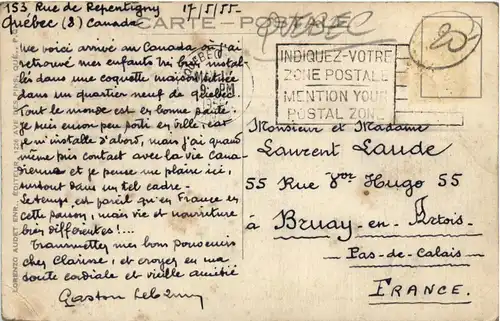 153 Rue de Repentigny 17/5/55-
Québec (8) Canada
CARTE - POSTALE
QUEBEC
20
QUEBEC
PM
INDIQUEZ-VOTRE
ZONE POSTALE
MENTION YOUR
POSTAL ZONE
Me voici arrivé au Canada où j'ai
retrouvé mes enfants très bien instal-
lés dans une coquette maison située
dans un quartier neuf de Québec.
Tout le monde est en bonne santé.
Je suis encore peu sorti en ville, car
je m'installe d'abord, mais j'ai quand
même pris contact avec la vie Cana-
dienne et je pense me plaire ici,
surtout dans un tel cadre.
Le temps est pareil qu'en France en
cette saison, mais vie et nourriture
bien différentes!...
Transmettez mes bons souvenirs
chez Clarisse, et croyez en ma
toute cordiale et vieille amitié
Gaston
Monsieur et Madame
Laurent Laude
55 Rue Vor Hugo 55
à Bruay-en-Artois-
Pas-de-Calais-
FRANCE.
LORENZO AUDET ENR., EDITEUR